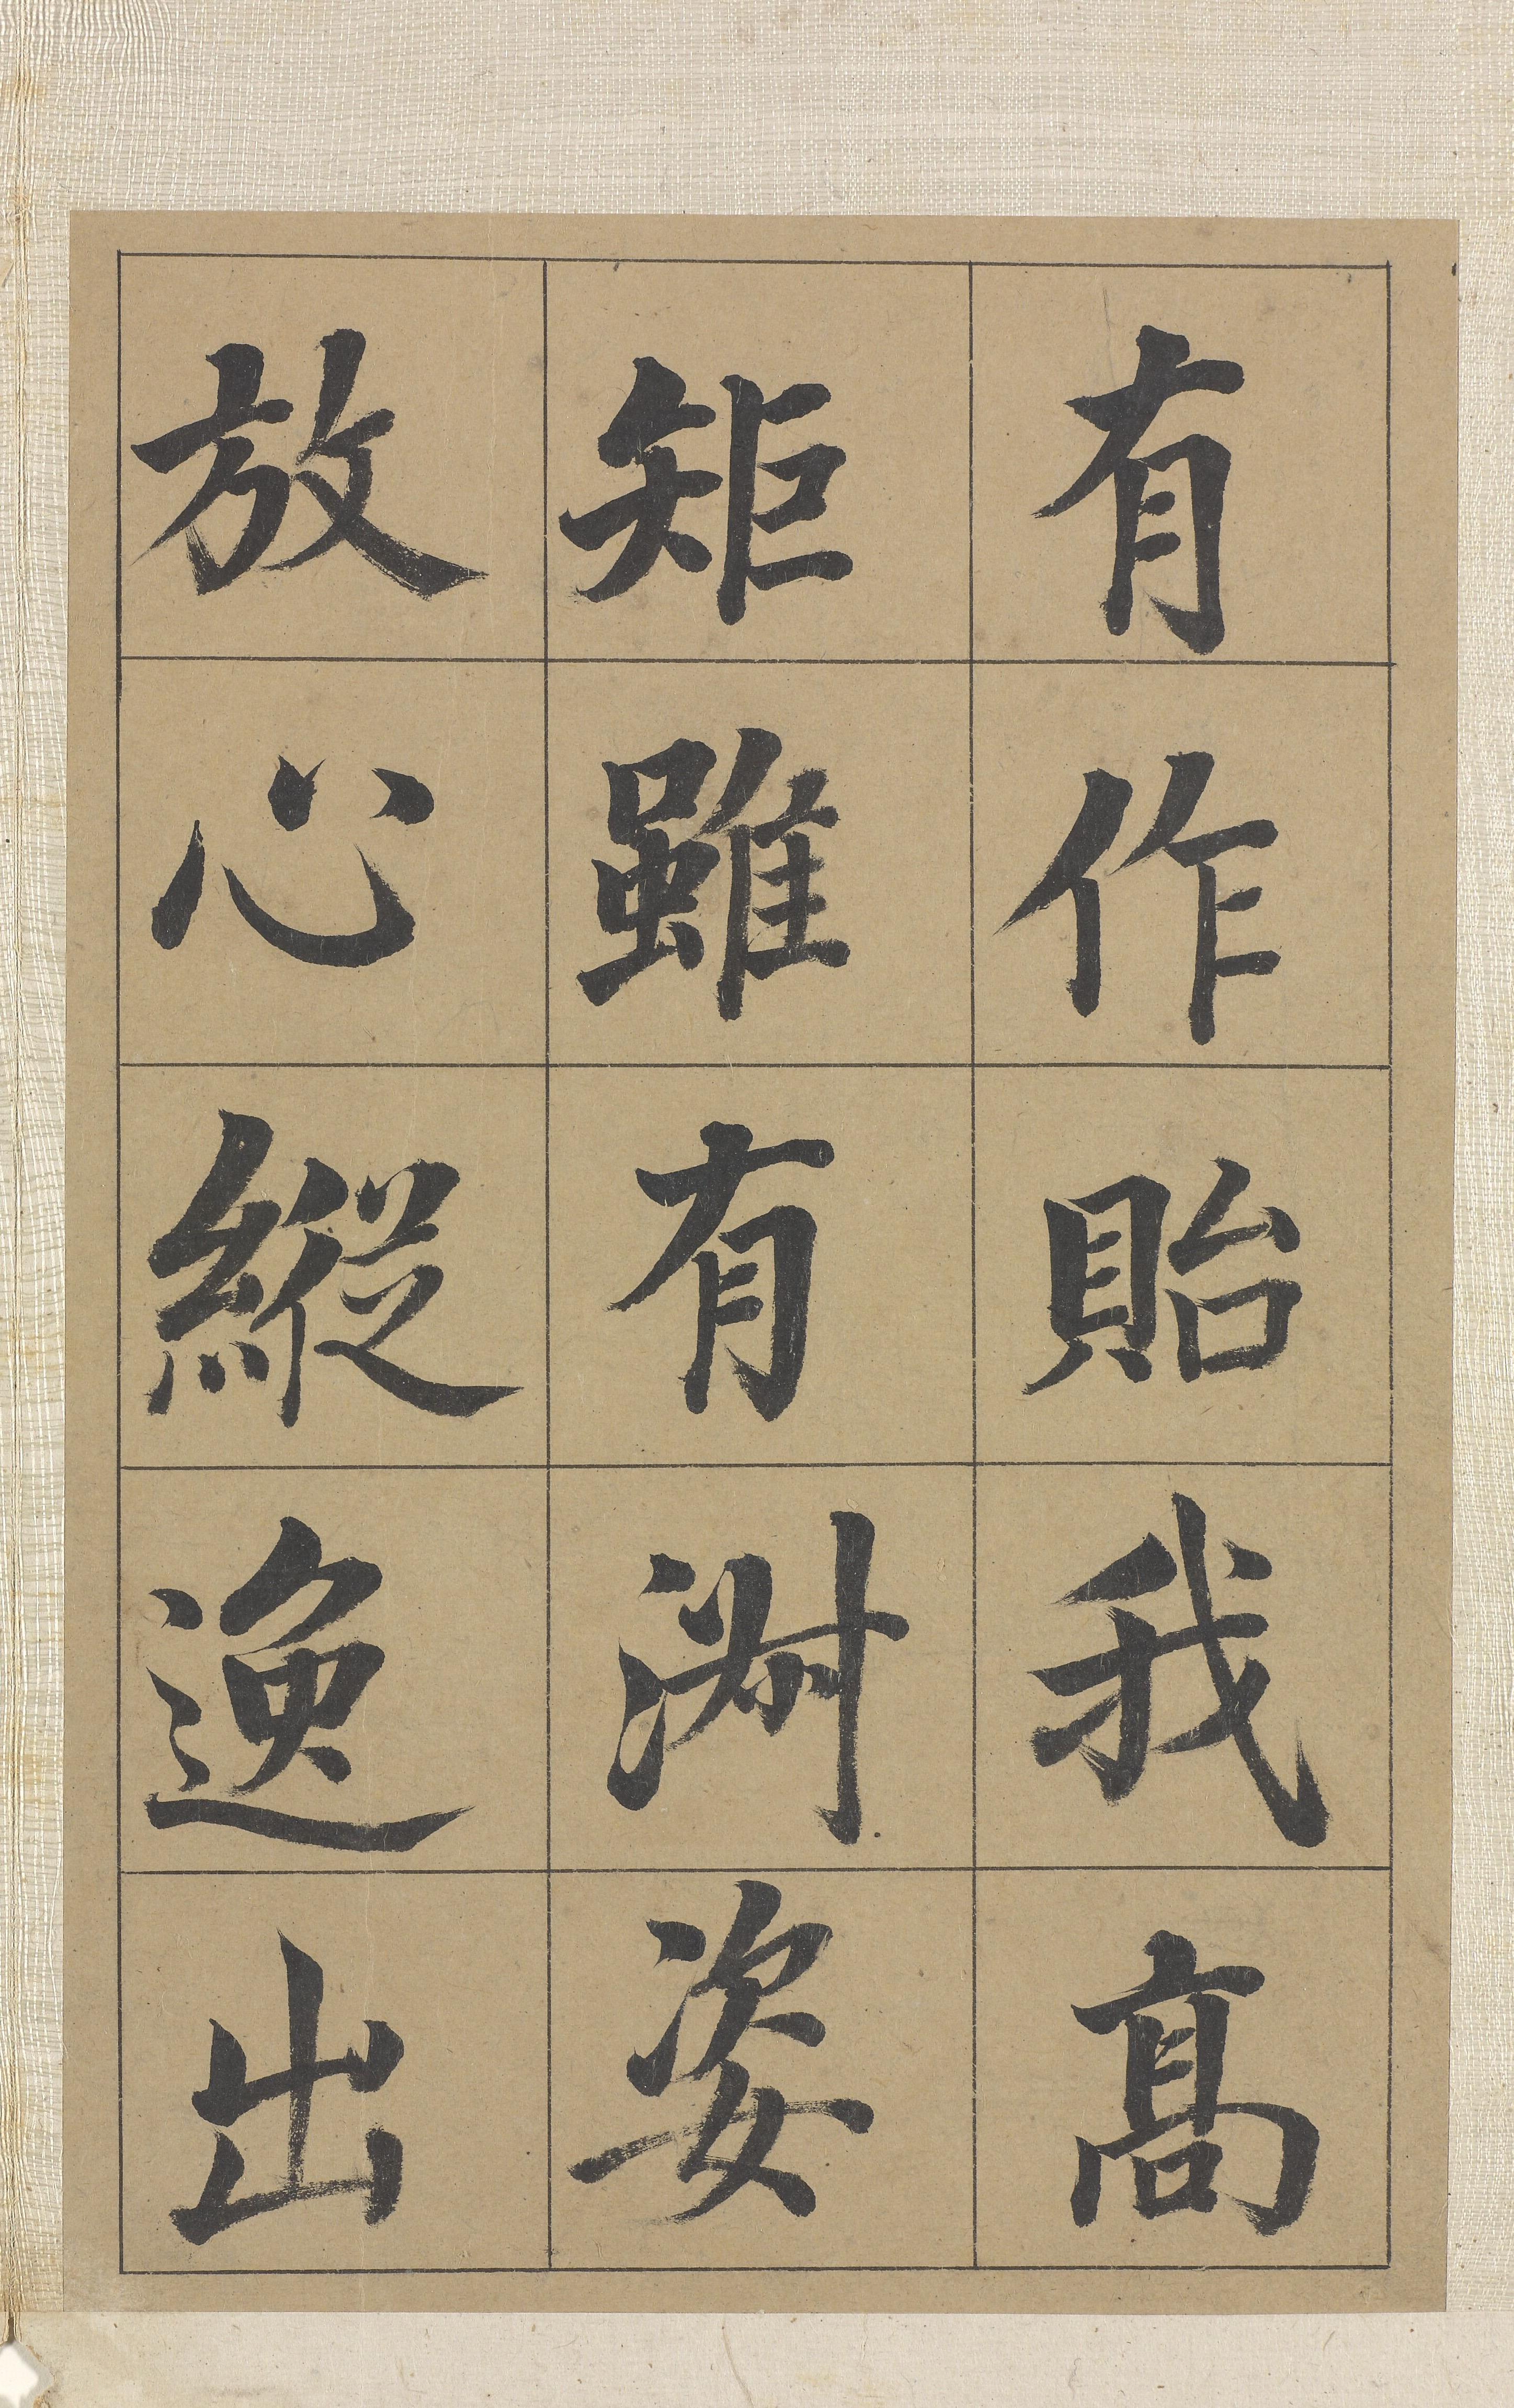 有作貽我高
矩雖有淵姿
放心縱逸出